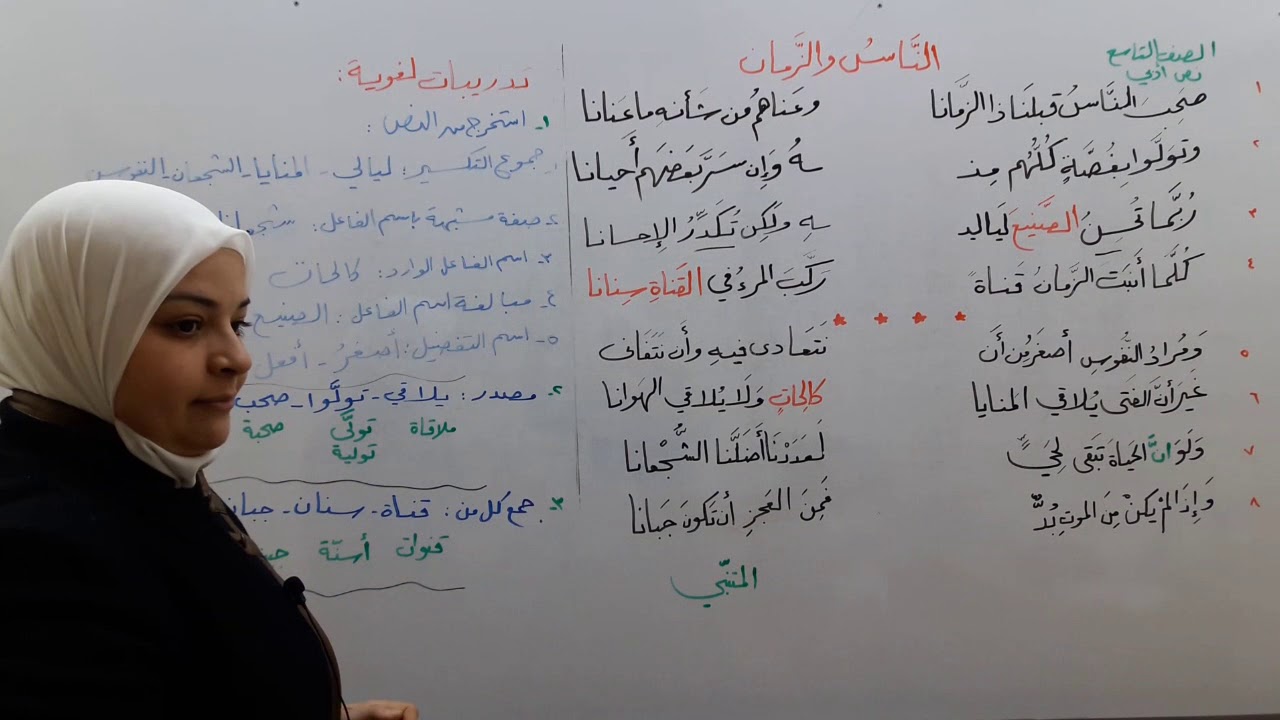 الصف التاسع
نص أدبي
النَّاسُ والزَّمان
١ صَحِبَ النَّاسُ قبلنَا ذا الزَّمانا وعَناهُم مُن شَأنهِ ما عَنانا
٢ وتَوَلَّوا بِغُصَّةٍ كُلُّهُم مِنـ ـهُ وَإِن سَرَّ بَعضَهَم أَحيانا
٣ رُبَّما تُحسِنُ الصَّنيعَ لَياليـ ـهِ ولَكِن تُكَدِّرُ الإحسانا
٤ كُلَّما أنبَتَ الزَّمانُ قَناةً رَكَّبَ المَرءُ في القَناةِ سِنانا
٥ وَمُرادُ النُّفوسِ أَصغَرُ مِن أَن نَتَعادى فيهِ وأَن نَتَفانى
٦ غَيرَ أَنَّ الفَتى يُلاقي المَنايا كالِحاتٍ وَلَا يُلاقي الهَوانا
٧ وَلَوَ انَّ الحَياةَ تَبقَى لِحَيٍّ لَعَدَدْنَا أَضَلَّنا الشُّجْعانا
٨ وَإِذا لَمْ يَكُنْ مِنَ المَوتِ بُدٌّ فَمِنَ العَجزِ أن تَكونَ جَبانا
المتنبّي
تدريبات لغوية:
١- استخرج من النص:
١. جموع التكسير: ليالي - المنايا - الشجعان - النفوس
٢- صفة مشبهة باسم الفاعل:
٣- اسم الفاعل الوارد: كالحات
٤- مبالغة اسم الفاعل: الصنيع
٥- اسم التفضيل: أصغرُ - أفعل
٢- مصدر: يلاقي - تولَّوا - صحب
ملاقاة تولّي صحبة
تولية
٣- جمع كل من: قناة - سنان - جبان
قنوات أسنّة